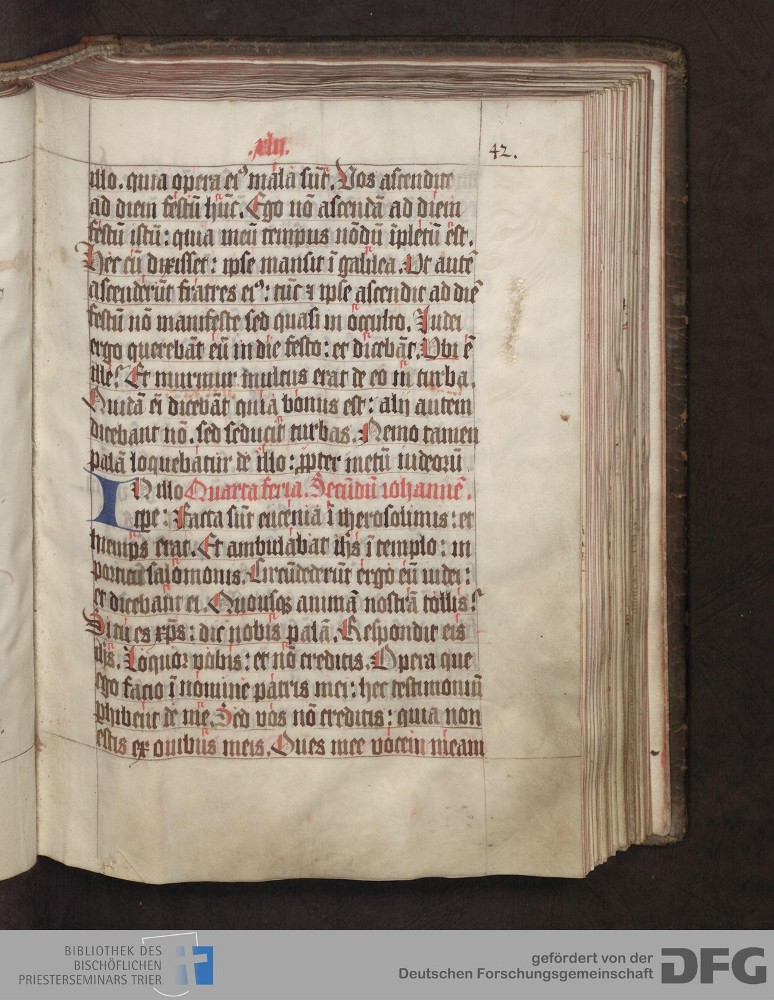 .xlij.
42.
illo. quia opera ei⁹ mala sūt. Vos ascendite
ad diem festū hūc. Ego nō ascendā ad diem
festū istū: quia meū tempus nōdū īpletū est.
Hec cū dixisset: ipse mansit ī galilea. Ut autē
ascenderūt fratres ei⁹: tūc ⁊ ipse ascendit ad diē
festū nō manifeste sed quasi in occulto. Iudei
ergo querebāt eū in die festo: et dicebāt. Ubi ē
ille? Et murmur multus erat de eo in turba.
Quidā ei dicebāt quia bonus est: alij autem
dicebant nō. sed seducit turbas. Nemo tamen
palā loquebatur de illo: ꝓpter metū iudeorū
IN illo Quarta feria. Secūdū iohannē.
tꝑe: Facta sūt encenia ī iherosolimis: et
hiemps erat. Et ambulabat ihs̄ ī templo: in
porticu salomonis. Circūdederūt ergo eū iudei:
et dicebant ei. Quousqꝫ animā nostrā tollis?
Si tu es xp̄s: dic nobis palā. Respondit eis
ihs̄. Loquor vobis: et nō creditis. Opera que
ego facio ī nomine patris mei: hec testimoniū
ꝑhibent de me. Sed vos nō creditis: quia non
estis ex ouibus meis. Oues mee vocem meam
BIBLIOTHEK DES
BISCHÖFLICHEN
PRIESTERSEMINARS TRIER
gefördert von der
Deutschen Forschungsgemeinschaft DFG